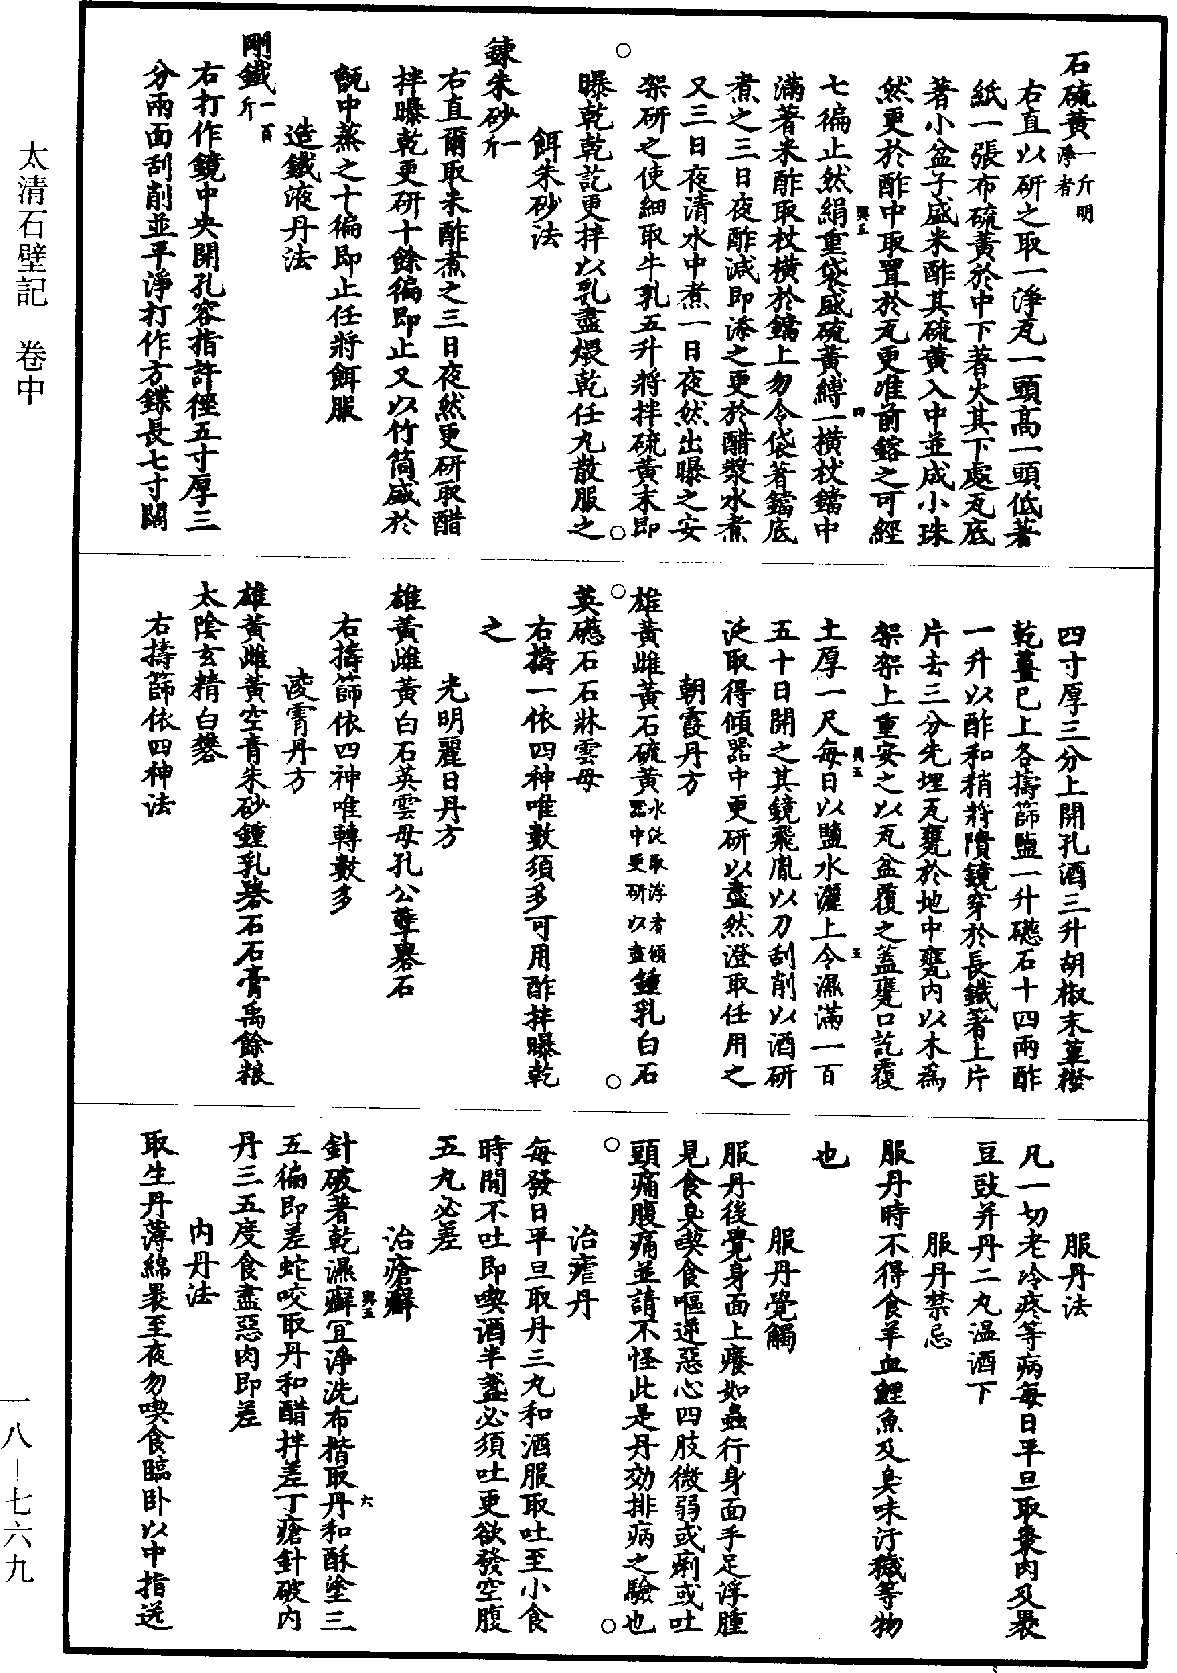 石硫黃一斤明淨者
右直以研之取一淨瓦一頭高一頭低著
紙一張布硫黃於中下著火其下處瓦底
著小盆子盛米酢其硫黃入中並成小珠
然更於酢中取置於瓦更准前鎔之可經
七徧止然絹重袋盛硫黃縛一橫杖鐺中
滿著米酢取杖橫於鐺上勿令袋著鐺底
煮之三日夜酢減即添之更於醋漿水煮
又三日夜清水中煮一日夜然出曝之安
架研之使細取牛乳五升將拌硫黃末即
曝乾乾訖更拌以乳盡煨乾任丸散服之
餌朱砂法
鍊朱砂一斤
右直爾取朱酢煮之三日夜然更研取醋
拌曝乾更研十餘徧即止又以竹筒盛於
甑中蒸之十徧即止任將餌服
造鐵液丹法
剛鐵一百斤
右打作鏡中央開孔容指許徑五寸厚三
分兩面刮削並平淨打作方鍱長七寸闊
四寸厚三分上開孔酒三升胡椒末蓽撥
乾薑已上各擣篩鹽一升礠石十四兩酢
一升以酢和稍稍隤鏡穿於長鐵著上片
片去三分先埋瓦甕於地中甕內以木為
架架上重安之以瓦盆覆之蓋甕口訖覆
土厚一尺每日以鹽水灑上令濕滿一百
五十日開之其鏡飛胤以刀刮削以酒研
泛取得傾器中更研以盡然澄取任用之
朝霞丹方
雄黃雌黃石硫黃水泛取浮者傾器中更研以盡鍾乳白石
英礠石石牀雲母
右擣一依四神唯數須多可用酢拌曝乾
之
光明麗日丹方
雄黃雌黃白石英雲母孔公孽礜石
右擣篩依四神唯轉數多
凌霄丹方
雄黃雌黃空青朱砂鍾乳礜石石膏禹餘粮
太陰玄精白礬
右擣篩依四神法
服丹法
凡一切老冷疼等病每日平旦取棗肉及裹
豆豉并丹二丸温酒下
服丹禁忌
服丹時不得食羊血鯉魚及臭味汙穢等物
也
服丹覺觸
服丹後覺身面上癢如蟲行身面手足浮腫
見食臭喫食嘔逆惡心四肢微弱或痢或吐
頭痛腹痛並請不怪此是丹効排病之驗也
治瘧丹
每發日平旦取丹三丸和酒服取吐至小食
時間不吐即喫酒半盞必須吐更欲發空腹
五丸必差
治瘡癬
針破著乾濕癬宜淨洗布揩取丹和酥塗三
五徧即差蛇咬取丹和醋拌差丁瘡針破內
丹三五度食盡惡肉即差
內丹法
取生丹薄綿裹至夜勿喫食臨卧以中指送
太清石壁記　卷中
一八—七六九